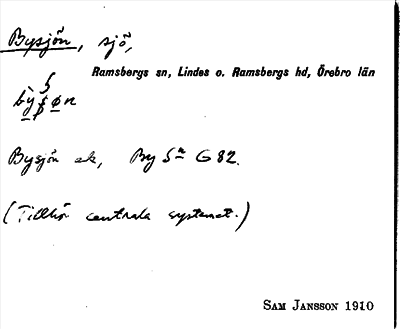 Bysjön, sjö,
Ramsbergs sn, Lindes o. Ramsbergs hd, Örebro län
Bysjön ek, By 5 G 82.
(Tillhör centrala systemet.)
SAM JANSSON 1910